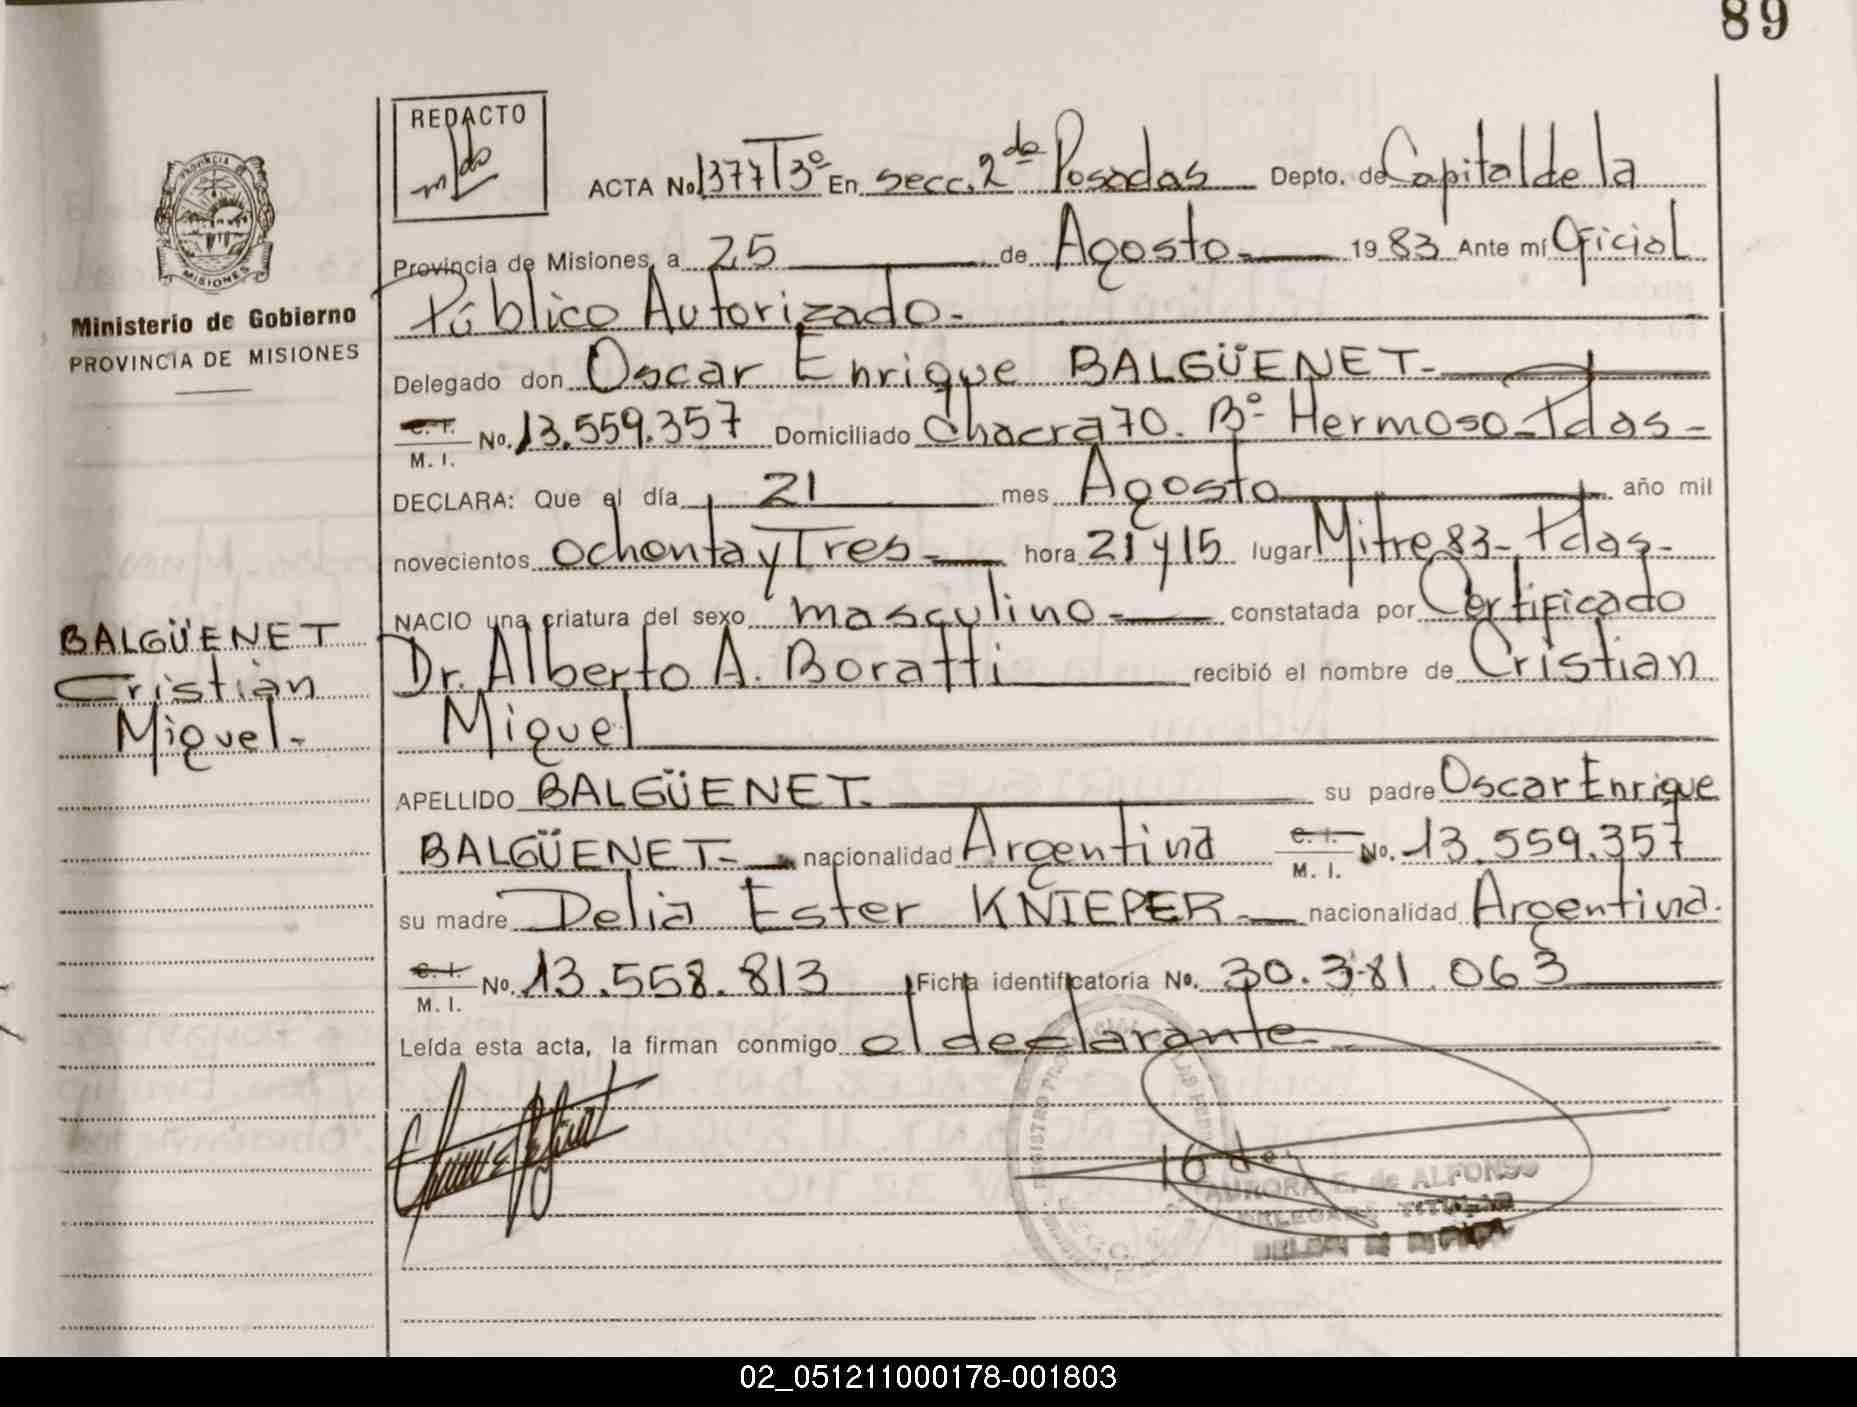 89
REDACTO
PROVINCIA
MISIONES
Ministerio de Gobierno
PROVINCIA DE MISIONES
BALGÜENET
Cristian
Miguel.-
ACTA No. 1377 T3º En secc. 2da Posadas Depto. de Capital de la
Provincia de Misiones, a 25 de Agosto 1983 Ante mi Oficial
Público Autorizado.-
Delegado don Oscar Enrique BALGÜENET-
C. I. M. I. No. 13.559.357 Domiciliado Chacra 70. Bº Hermoso-Pdas-
DECLARA: Que el día 21 mes Agosto año mil
novecientos ochenta y Tres- hora 21 y 15 lugar Mitre 83- Pdas-
NACIO una criatura del sexo masculino- constatada por Certificado
Dr. Alberto A. Boratti recibió el nombre de Cristian
Miguel
APELLIDO BALGÜENET. su padre Oscar Enrique
BALGÜENET- nacionalidad Argentina C. I. M. I. No. 13.559.357
su madre Delia Ester KNIEPER- nacionalidad Argentina.
C. I. M. I. No. 13.558.813 Ficha identificatoria No. 30.381.063
Leída esta acta, la firman conmigo el declarante
AURORA E. de ALFONSO
DELEGADA TITULAR
02_051211000178-001803